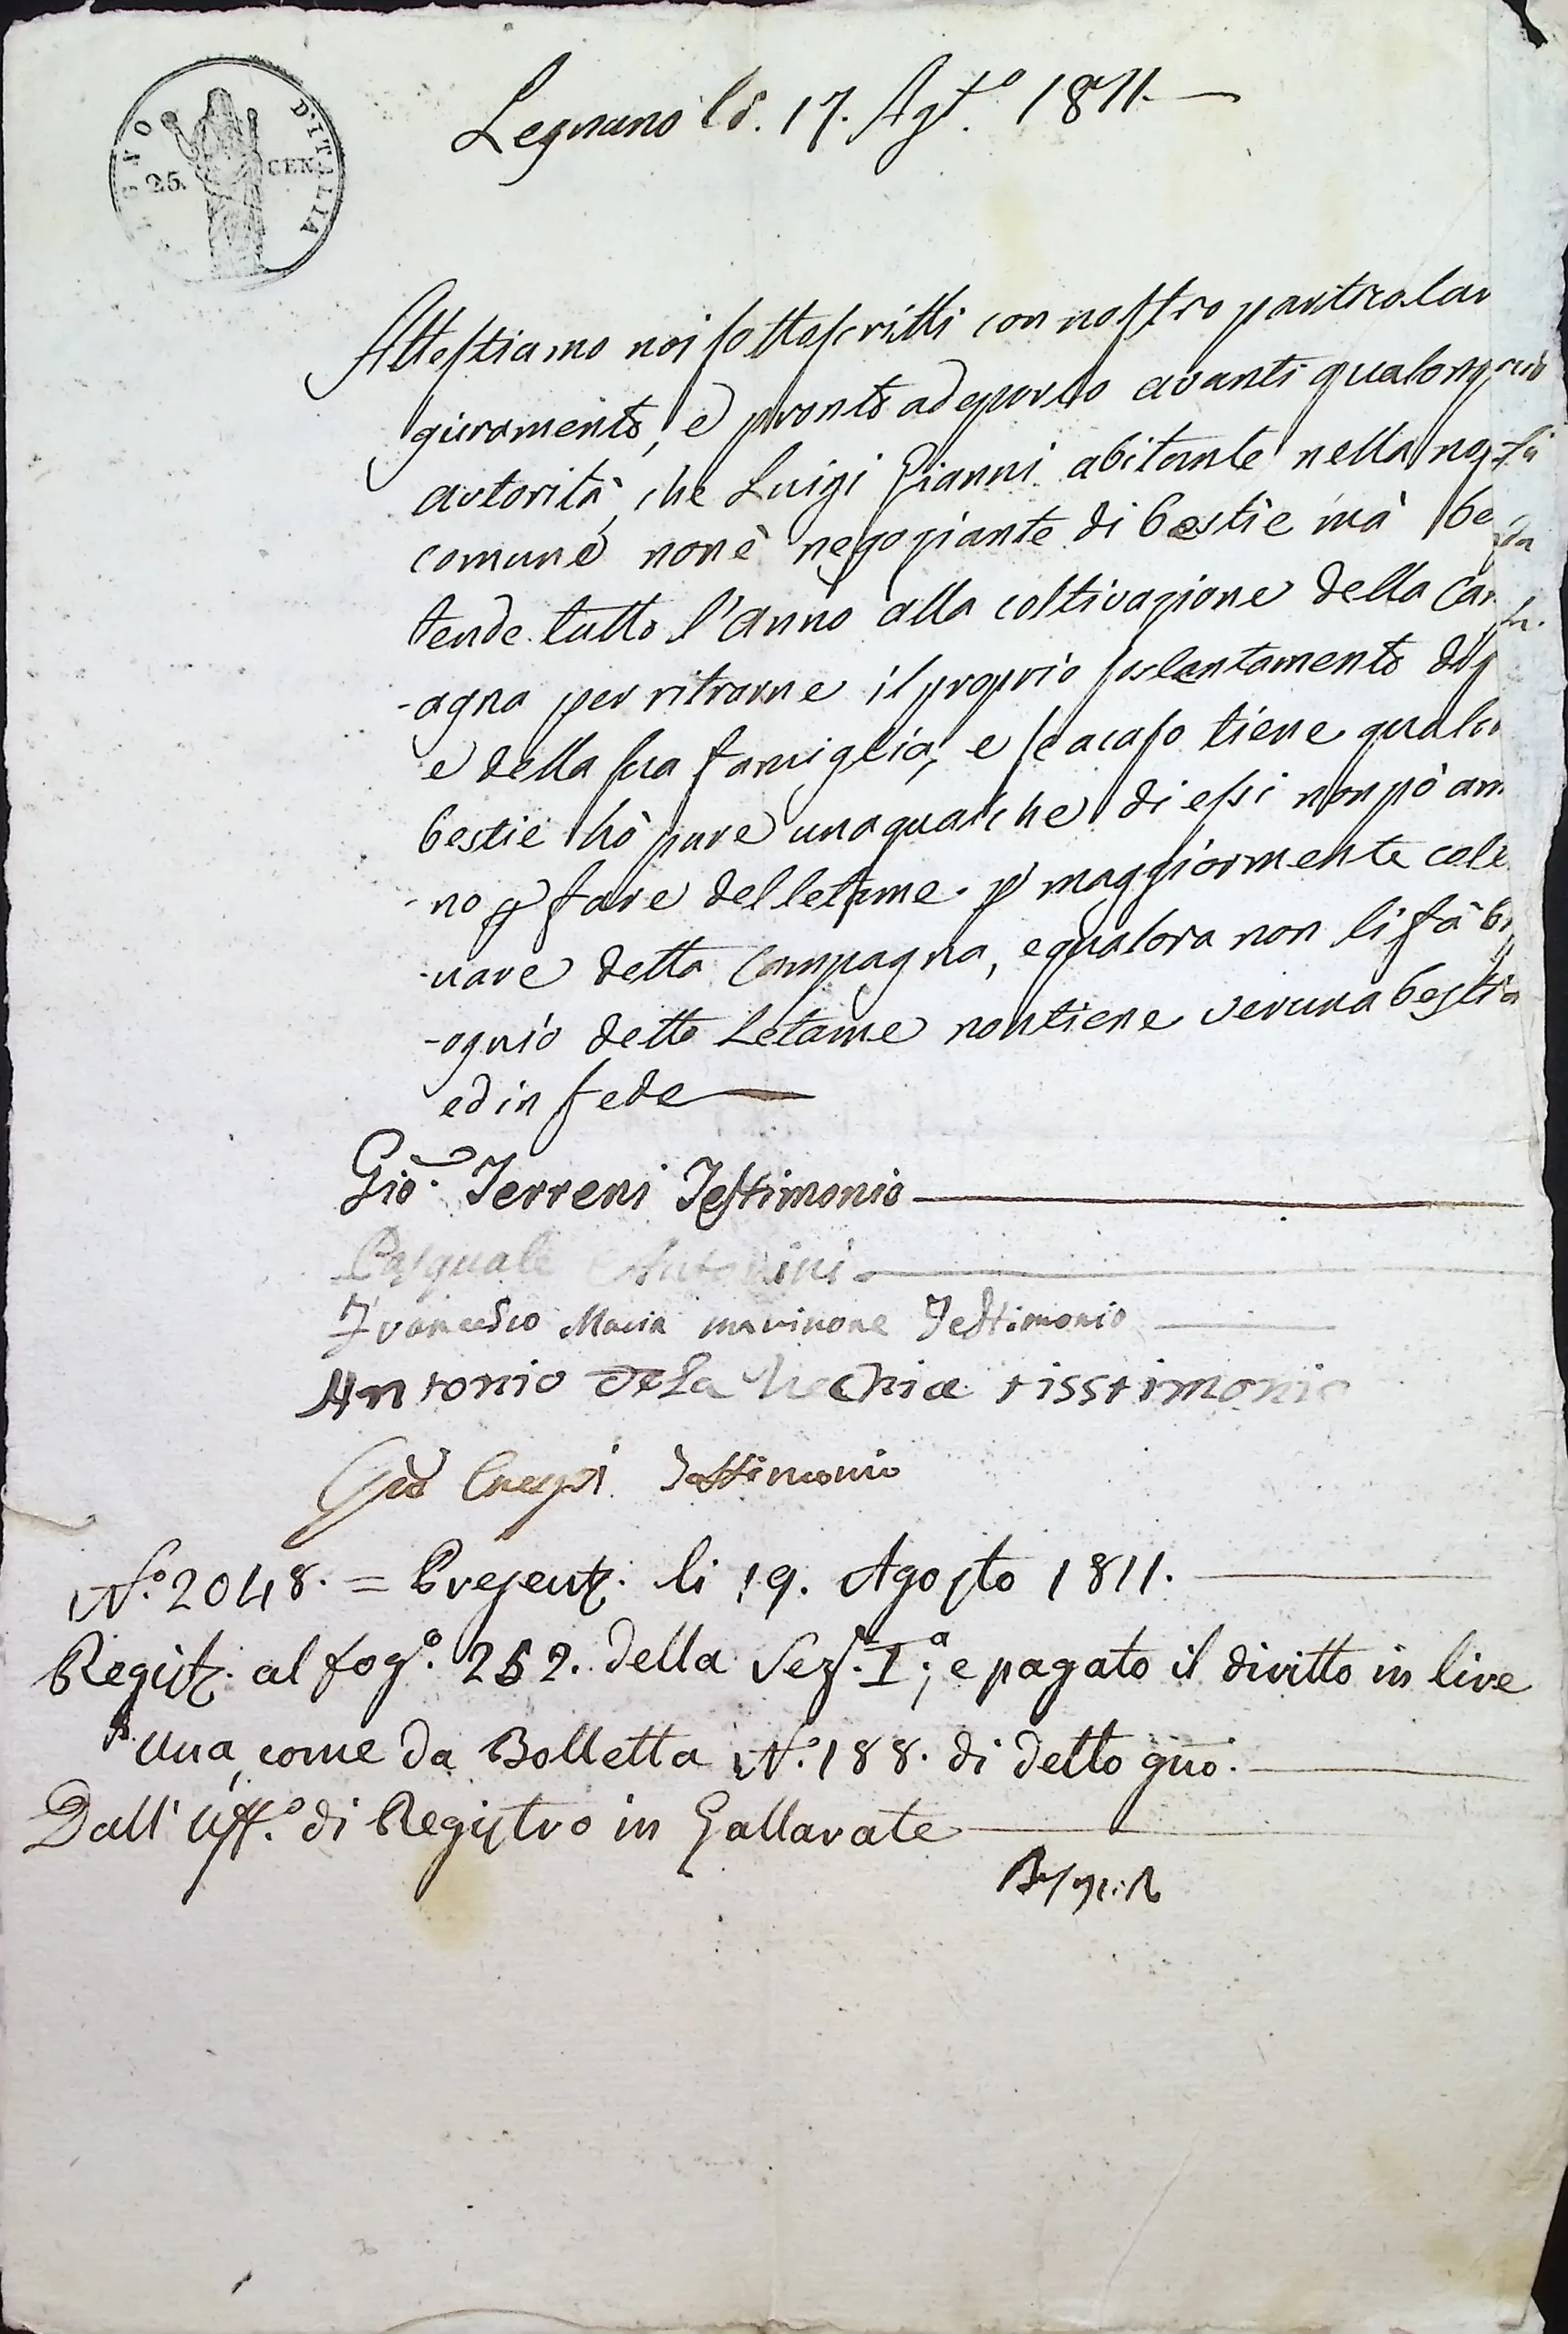 REGNO D'ITALIA
25. CEN
Legnano li. 17. Agt.o 1811
Attestiamo noi sottoscritti con nostro particolar
giuramento, e pronto adeporlo avanti qualonque
autorità, che Luigi Gianni abitante nella nostra
comune non è negoziante di bestie mà
tende tutto l'anno alla coltivazione della Cam
-agna per ritrarne il proprio sostentamento di
e della sua famiglia, e se acaso tiene qualche
bestie hò pure unaqualche di essi non pò am
-no p fare del letame p maggiormente colti
-vare detta Campagna, equalora non li fà bi
-ognio detto Letame non tiene veruna bestia
ed in fede
Gio. Terreni Testimonio
Pasquale Antonini
Francesco Maria marinone Testimonio
Antonio dela Vechia tisstimonio
Gio Crespi Testimonio
N.o 2048. = Presentz. li 19. Agosto 1811.
Registz. al fog.o 252. della Sez. I.a, e pagato il diritto in lire
una, come da Bolletta N.o 188. di detto gno.
Dall' Uff.o di Registro in Gallarate